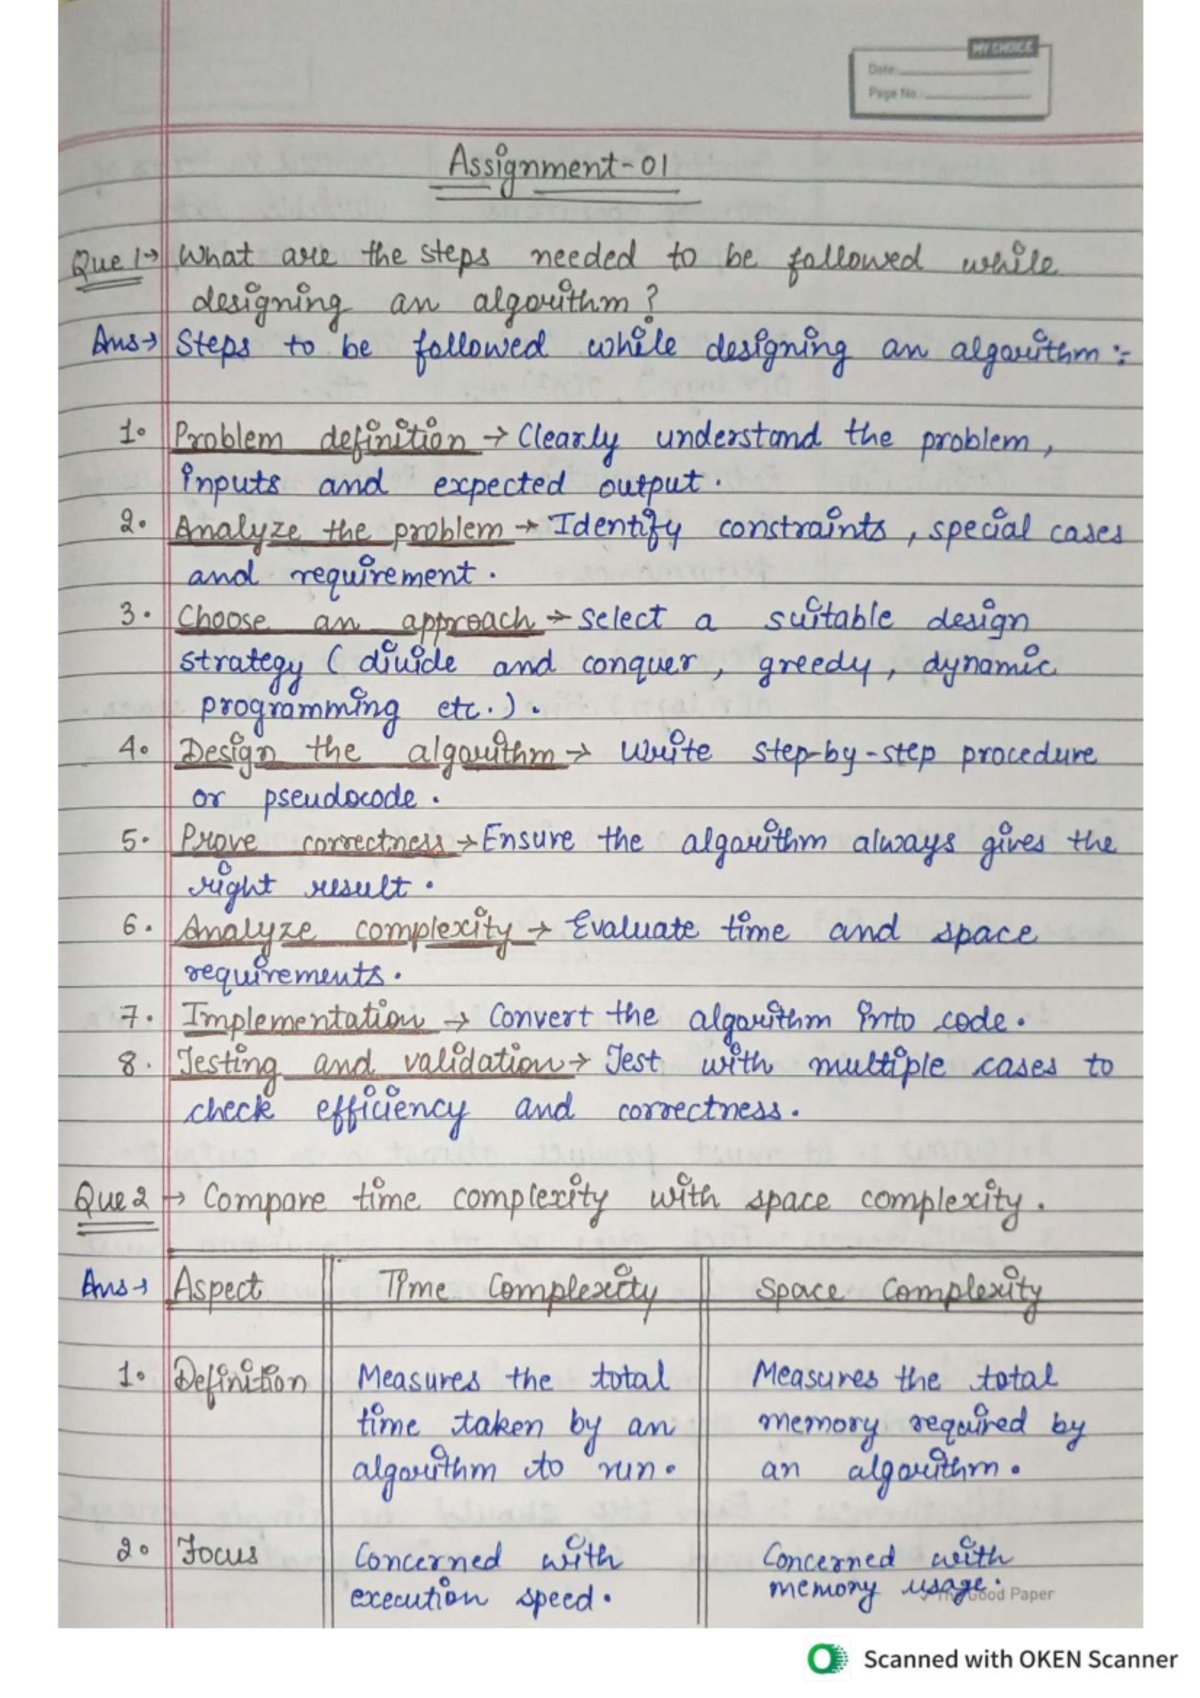 MY CHOICE
Date:
Page No.:
Assignment-01
Que 1→ What are the steps needed to be followed while
designing an algorithm?
Ans→ Steps to be followed while designing an algorithm :-
1. Problem definition → Clearly understand the problem,
inputs and expected output.
2. Analyze the problem → Identify constraints, special cases
and requirement.
3. Choose an approach → Select a suitable design
strategy (divide and conquer, greedy, dynamic
programming etc.).
4. Design the algorithm → Write step-by-step procedure
or pseudocode.
5. Prove correctness → Ensure the algorithm always gives the
right result.
6. Analyze complexity → Evaluate time and space
requirements.
7. Implementation → Convert the algorithm into code.
8. Testing and validation → Test with multiple cases to
check efficiency and correctness.
Que 2 → Compare time complexity with space complexity.
Ans→ Aspect Time Complexity Space Complexity
1. Definition Measures the total Measures the total
time taken by an memory required by
algorithm to run. an algorithm.
2. Focus Concerned with Concerned with
execution speed. memory usage.
Good Paper
Scanned with OKEN Scanner